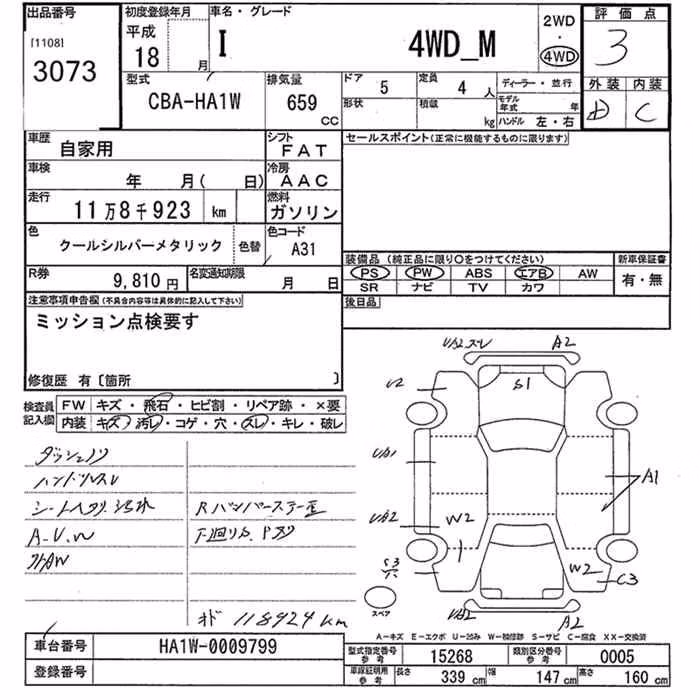 出品番号
[1108]
3073
初度登録年月
平成
18 月
車名・グレード
I 4WD_M
2WD
・
4WD
評価点
3
外装 内装
D C
型式
CBA-HA1W
排気量
659
CC
ドア
5
定員
4 人
形状
積載
kg
ディーラー・並行
モデル年式 年
ハンドル 左・右
車歴
自家用
シフト
FAT
車検
年 月( 日)
冷房
AAC
走行
11万8千923 km
燃料
ガソリン
色
クールシルバーメタリック
色替
色コード
A31
R券
9,810 円
名変通知期限
月 日
セールスポイント(正常に機能するものに限ります)
装備品(純正品に限り○をつけてください)
PS PW ABS エアB AW
SR ナビ TV カワ
新車保証書
有・無
後日品
注意事項申告欄(不具合内容等は具体的に記入して下さい)
ミッション点検要す
修復歴 有〔箇所 〕
検査員記入欄
FW キズ・飛石・ヒビ割・リペア跡・×要
内装 キズ・汚レ・コゲ・穴・スレ・キレ・破レ
ハンドルスレ
A-V.W
118924 km
UA2 スレ A2
S1
U2
UA1
A1
UA2
W2
S3
W2
C3
スペア
UA2
A2
A-キズ E-エクボ U-凹み W-補修跡 S-サビ C-腐食 XX-交換済
車台番号 HA1W-0009799
登録番号
型式指定番号 参考 15268 類別区分番号 参考 0005
車庫証明用 参考 長さ 339 cm 幅 147 cm 高さ 160 cm